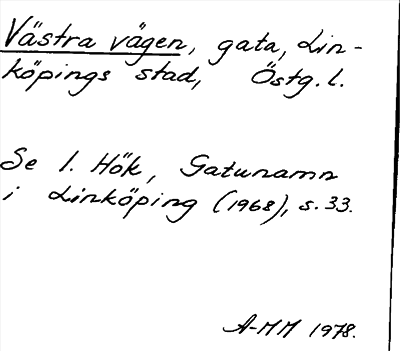 Västra vägen, gata, Lin-
köpings stad, Östg. l.
Se I. Hök, Gatunamn
i Linköping (1968), s. 33.
A-MM 1978.